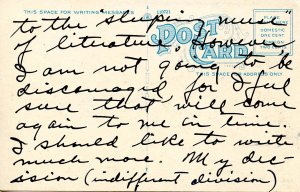 THIS SPACE FOR WRITING MESSAGES
POST CARD
THIS SPACE FOR ADDRESS ONLY
DOMESTIC
ONE CENT
to the "sleeping muse"
of literature. However
I am not going to be
discouraged for I feel
sure that will come
again to me in time.
I should like to write
much more. My dec-
ission (indifferent division)